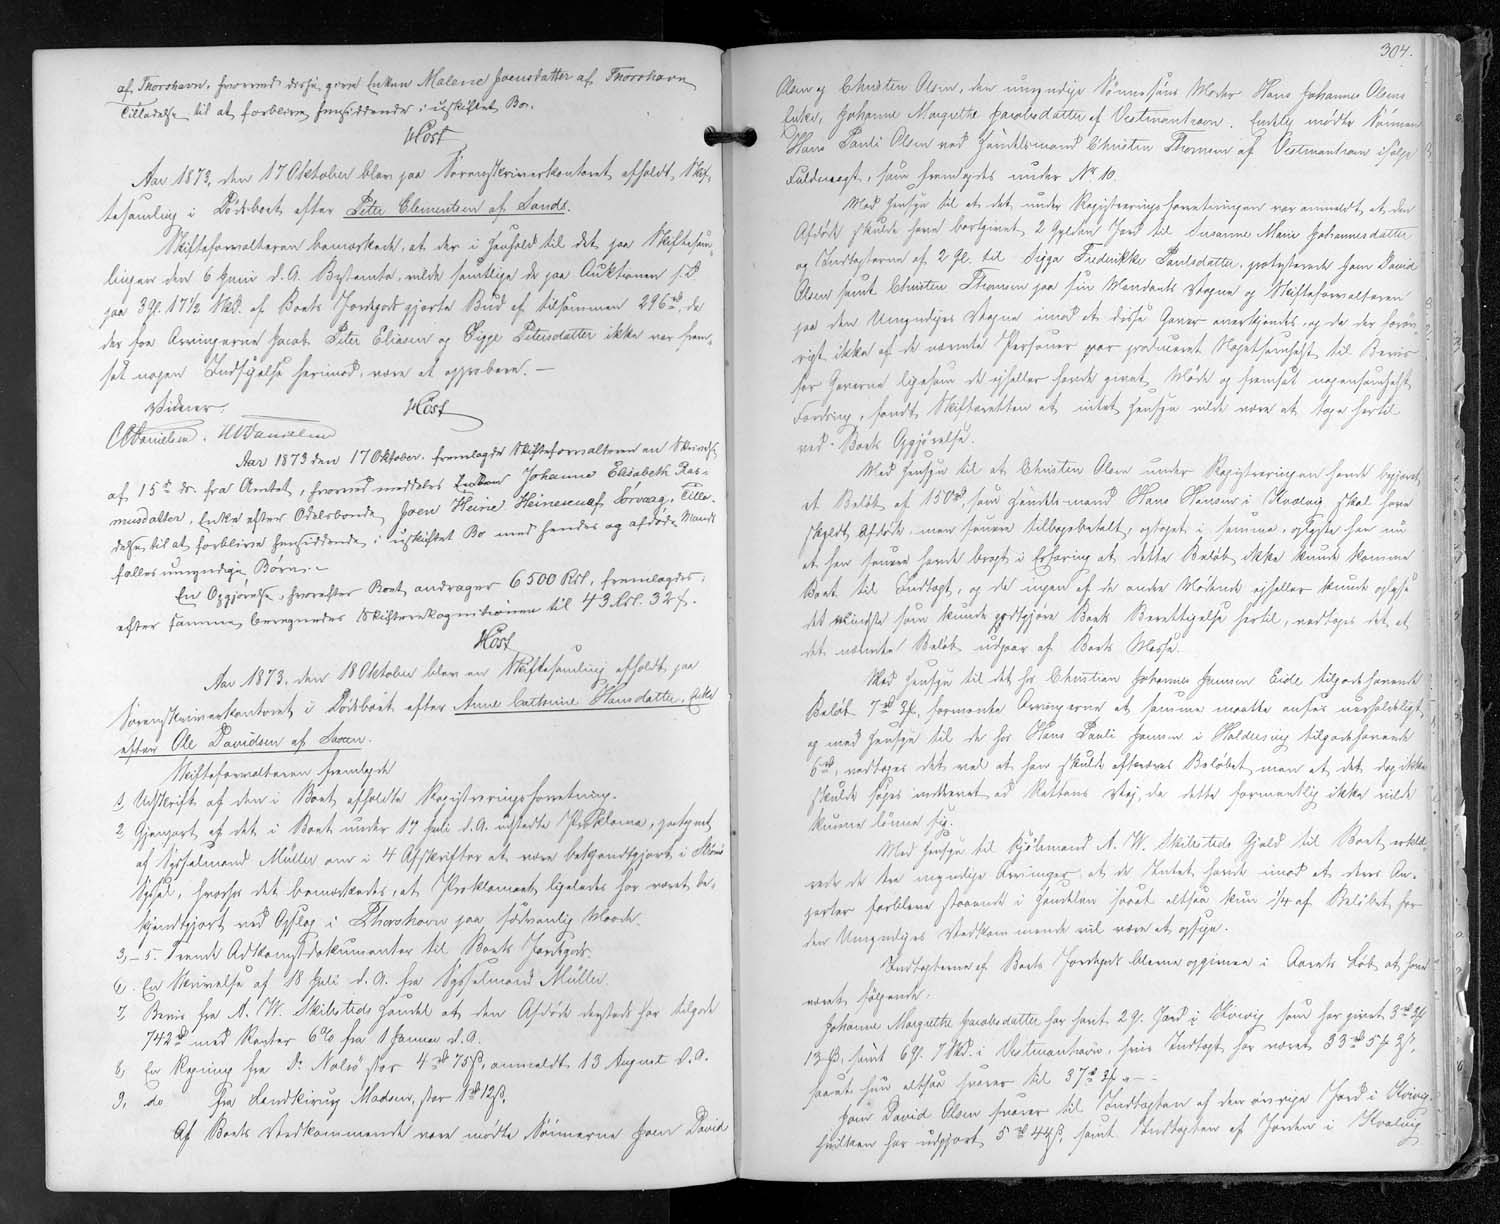 af Thorshavn, hvorved disse give Enken Malene Joensdatter af Thorshavn
Tilladelse til at forblive hensiddende i uskiftet Bo.
Høst
Aar 1873, den 17 Oktober blev paa Sorenskriverkontoret afholdt Skif-
tesamling i Dødsboet efter Peter Clementsen af Sands.
Skifteforvalteren bemærkede, at der i Henhold til det paa Skiftesam-
lingen den 6 Juni d.A. Bestemte, vilde samtlige de paa Auktionen
paa 3 Gl. 17½ Skd. af Boets Jordegods gjorte Bud af tilsammen 296 rd, da
der fra Arvingerne Jacob Peter Eliasen og Sigge Petersdatter ikke var frem-
sat nogen Indsigelse herimod, være at approbere. –
Vidner. Høst
Danielsen. Danielsen
Aar 1873 den 17 Oktober fremlagde Skifteforvalteren en Skrivelse
af 15de ds. fra Amtet, hvorved meddeles Johanne Elisabeth Ras-
musdatter, Enke efter Odelsbonde Joen Heine Heinesen af Sørvaag, Tilla-
delse til at forblive hensiddende i uskiftet Bo med hendes og afdøde Mands
fælles umyndige Børn. –
En Opgjørelse, hvorefter Boet andrager 6500 Rdl., fremlagdes;
efter samme beregnedes Skifterekognitionen til 43 Rdl. 32 ß.
Høst
Aar 1873, den 18 Oktober blev en Skiftesamling afholdt paa
Sorenskriverkontoret i Dødsboet efter Anne Cathrine Hansdatter, Enke
efter Ole Davidsen af
Skifteforvalteren fremlagde
1, Udskrift af den i Boet afholdte Registreringsforretning.
2 Gjenpart af det i Boet under 17 Juli d.A. udstedte Proklama, paategnet
af Sysselmand Müller om i 4 Afskrifter at være bekjendtgjort i Strømø
Syssel, hvorhos det bemærkedes, at Proklamaet ligeledes har været be-
kjendtgjort ved Opslag i Thorshavn paa sædvanlig Maade.
3, – 5. Adkomstdokumenter til Boets Jordegods.
6. En Skrivelse af 18 Juli d.A. fra Sysselmand Müller.
7, Bevis fra A. W. Skibsteds Handel at den Afdøde har tilgode
742 rd med Renter 6% fra 1 Januar d.A.
8, En Regning fra D. Nolsø stor 4 rd 75 ß, anmeldt 13 August d.A.
9, do fra Landkirurg Madsen, stor 1 rd 12 ß.
Af Boets Vedkommende vare mødte Sønnerne Joen David
304.
Olsen og Christen Olsen, den umyndige Sønnesøns Moder Hans Johannes Olsens
Enke, Johanne Margrethe Jacobsdatter af Vestmanhavn. Endelig mødte Sønnen
Hans Pauli Olsen ved Handelsmand Christen Thomsen af Vestmanhavn ifølge
Fuldmagt, som fremlagdes under No 10.
Med Hensyn til at det under Registreringsforretningen var anmeldt at den
Afdøde skulde have bortgivet 2 Gylden Jord til Susanne Marie Johannesdatter
og Indtægterne af 2 Gl. til Sigga Frederikke Poulsdatter, protesterede Joen David
Olsen samt Christen Thomsen paa sin Mandants Vegne og Skifteforvalteren
paa den Umyndiges Vegne imod at disse Gaver anerkjendes, og da der forøv-
rigt ikke af de nævnte Personer var produceret Nogetsomhelst til Bevis
for Gaverne ligesom de ejheller havde givet Møde og fremsat nogensomhelst
Fordring, fandt Skifteretten at intet Hensyn vilde være at tage hertil
ved Boets Opgjørelse.
Med Hensyn til at Christen Olsen under Registreringen havde begjæret
et Beløb af 150 rd, som Handelsmand Hans Hansen i Kvalvig skal have
skyldt Afdøde, men senere tilbagebetalt, optaget i samme, oplyste han nu
at han senere havde bragt i Erfaring at dette Beløb ikke kunde komme
Boet til Indtægt, og da ingen af de andre Mødende ejheller kunde oplyse
det Mindste som kunde godtgjøre Boets Berettigelse hertil, vedtoges det at
det nævnte Beløb udgaar af Boets Masse.
Med Hensyn til det hos Christian Johannes Jensen Eide tilgodehavende
Beløb 7 rd 3 ß, formente Arvingerne at samme maatte ansees uerholdeligt
og med Hensyn til de hos Hans Pauli Jensen i Haldersvig tilgodehavende
6 rd, vedtoges det vel at han skulde afkræves Beløbet men at det dog ikke
skulde søges inddrevet ad Rettens Vej, da dette formentlig ikke vilde
kunne lønne sig.
Med Hensyn til Kjøbmand A. W. Skibsteds Gjæld til Boet erklæ-
rede de tre myndige Arvinger, at de Intet havde imod at deres An-
parter forblive staaende i Handelen saa at altsaa kun ¼ af Beløbet for
den Umyndiges Vedkommende vil være at opsige.
Indtægterne af Boets Jordegods bleve opgivne i Aarets Løb at have
været følgende:
Johanne Margrethe Jacobsdatter har havt 2 Gl. Jord i Kvivig som har givet 3 rd
13 ß, samt 6 Gl. 7 Skd. i Vestmanhavn, hvis Indtægt har været 33 rd 5
saa at hun altsaa svarer til 37 rd
Joen David Olsen svarer til Indtægten af den øvrige Jord i Kvivig,
hvilken har udgjort 5 rd 44 ß, samt Indtægten af Jorden i Kvalvig